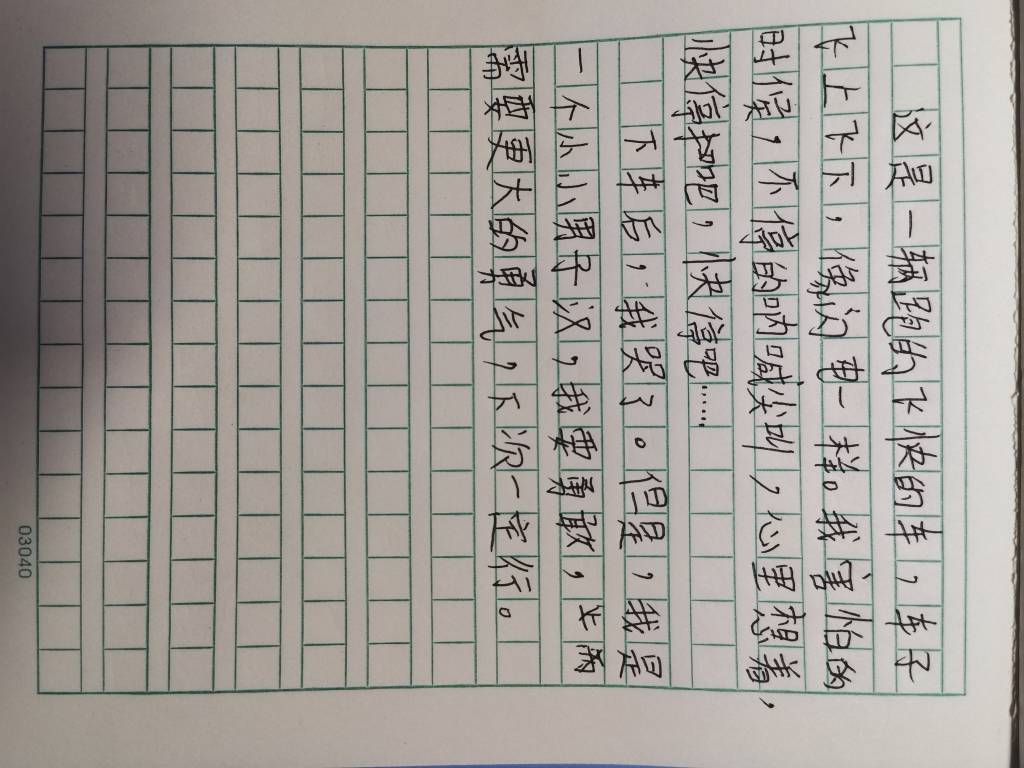 这是一辆跑的飞快的车，车子
飞上飞下，像闪电一样。我害怕的
时候，不停的呐喊尖叫，心里想着，
快停把吧，快停吧……
下车后，我哭了。但是，我是
一个小小男子汉，我要勇敢，
需要更大的勇气，下次一定行。
03040